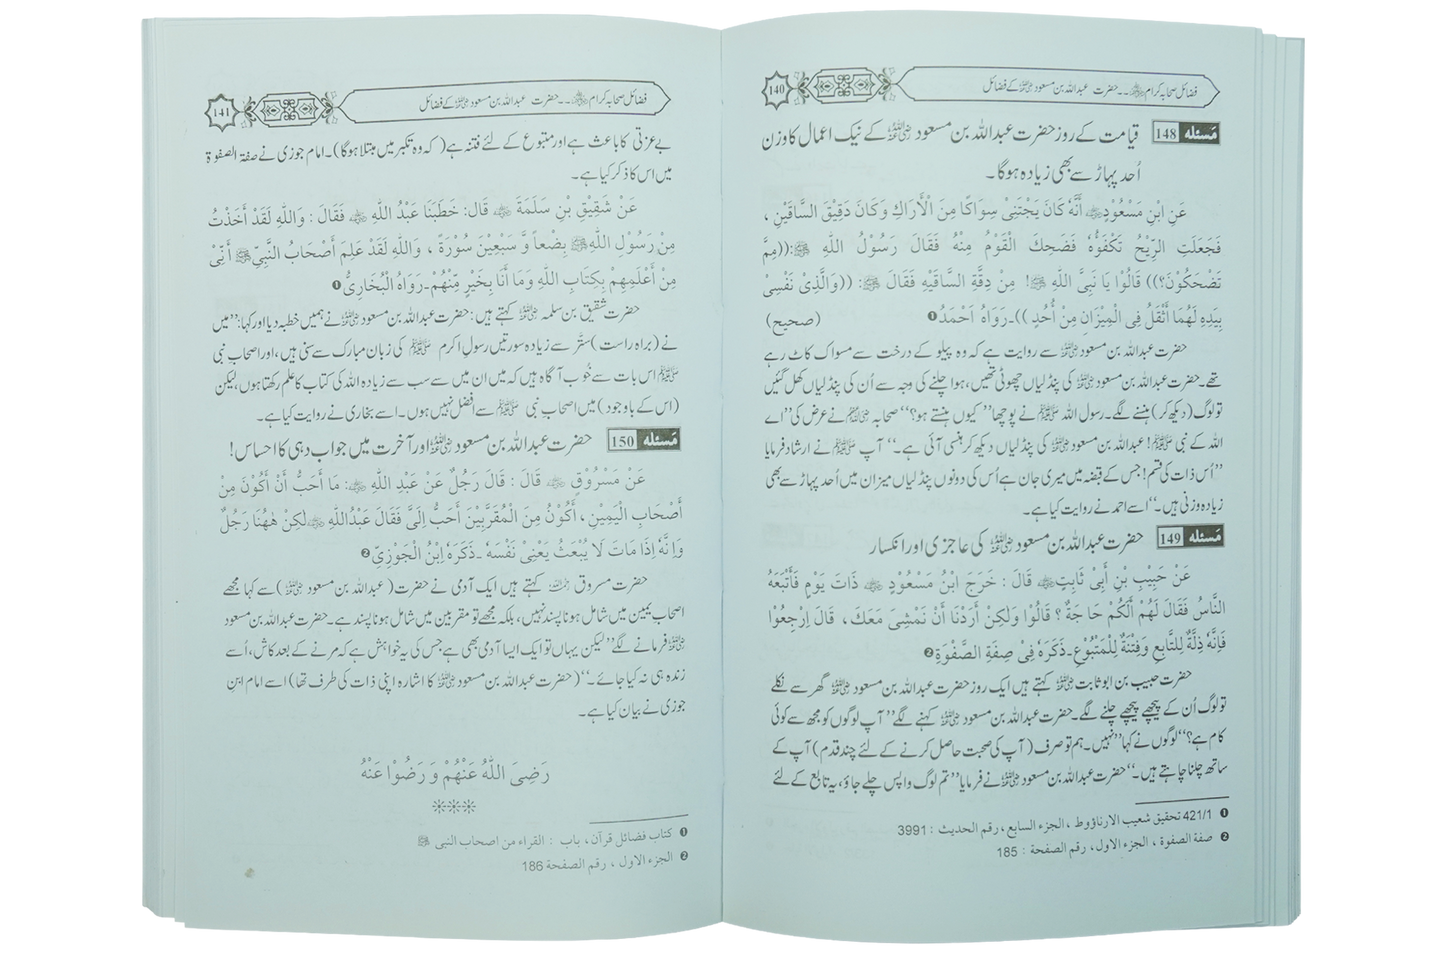 فضائل صحابہ کرام ﷡۔۔۔حضرت عبداللہ بن مسعود ﷜ کے فضائل
140
مَسئله 148 قیامت کے روز حضرت عبداللہ بن مسعود ﷜ کے نیک اعمال کا وزن
اُحد پہاڑ سے بھی زیادہ ہوگا۔
عَنِ ابْنِ مَسْعُوْدٍ ﷜ أَنَّهٗ كَانَ يَجْتَنِيْ سِوَاكًا مِنَ الْأَرَاكِ وَكَانَ دَقِيْقَ السَّاقَيْنِ ،
فَجَعَلَتِ الرِّيْحُ تَكْفَؤُهٗ فَضَحِكَ الْقَوْمُ مِنْهُ فَقَالَ رَسُوْلُ اللّٰهِ ﷺ :((مِمَّ
تَضْحَكُوْنَ؟)) قَالُوْا يَا نَبِيَّ اللّٰهِ ﷺ! مِنْ دِقَّةِ السَّاقَيْهِ فَقَالَ ﷺ: ((وَالَّذِيْ نَفْسِيْ
بِيَدِهٖ لَهُمَا أَثْقَلُ فِى الْمِيْزَانِ مِنْ أُحُدٍ ))۔رَوَاهُ اَحْمَدُ❶ (صحيح)
حضرت عبداللہ بن مسعود ﷜ سے روایت ہے کہ وہ پیلو کے درخت سے مسواک کاٹ رہے
تھے۔حضرت عبداللہ بن مسعود ﷜ کی پنڈلیاں چھوٹی تھیں، ہوا چلنے کی وجہ سے اُن کی پنڈلیاں کھل گئیں
تو لوگ (دیکھ کر) ہنسنے لگے۔رسول اللہ ﷺ نے پوچھا’’ کیوں ہنستے ہو؟‘‘ صحابہ ﷡ نے عرض کی’’اے
اللہ کے نبی ﷺ! عبداللہ بن مسعود ﷜ کی پنڈلیاں دیکھ کر ہنسی آئی ہے۔‘‘ آپ ﷺ نے ارشاد فرمایا
’’اُس ذات کی قسم! جس کے قبضہ میں میری جان ہے اُس کی دونوں پنڈلیاں میزان میں اُحد پہاڑ سے بھی
زیادہ وزنی ہیں۔‘‘ اسے احمد نے روایت کیا ہے۔
مَسئله 149 حضرت عبداللہ بن مسعود ﷜ کی عاجزی اور انکسار
عَنْ حَبِيْبِ بْنِ أَبِيْ ثَابِتٍ ﷜ قَالَ : خَرَجَ ابْنُ مَسْعُوْدٍ ﷜ ذَاتَ يَوْمٍ فَأَتْبَعَهُ
النَّاسُ فَقَالَ لَهُمْ أَلَكُمْ حَاجَةٌ ؟ قَالُوْا وَلٰكِنْ أَرَدْنَا أَنْ نَمْشِىَ مَعَكَ ، قَالَ اِرْجِعُوْا
فَإِنَّهٗ ذِلَّةٌ لِلتَّابِعِ وَفِتْنَةٌ لِلْمَتْبُوْعِ۔ذَكَرَهٗ فِيْ صِفَةِ الصَّفْوَةِ❷
حضرت حبیب بن ابو ثابت ﷜ کہتے ہیں ایک روز حضرت عبداللہ بن مسعود ﷜ گھر سے نکلے
تو لوگ اُن کے پیچھے پیچھے چلنے لگے۔حضرت عبداللہ بن مسعود ﷜ کہنے لگے’’ آپ لوگوں کو مجھ سے کوئی
کام ہے؟‘‘ لوگوں نے کہا’’نہیں۔ ہم تو صرف ( آپ کی صحبت حاصل کرنے کے لئے چند قدم) آپ کے
ساتھ چلنا چاہتے ہیں۔‘‘ حضرت عبداللہ بن مسعود ﷜ نے فرمایا’’تم لوگ واپس چلے جاؤ، یہ تابع کے لئے
❶ 421/1 تحقيق شعيب الارناؤوط ، الجزء السابع ، رقم الحديث : 3991
❷ صفة الصفوة ، الجزء الاول، رقم الصفحة : 185
فضائل صحابہ کرام ﷡۔۔۔حضرت عبداللہ بن مسعود ﷜ کے فضائل
141
بے عزتی کا باعث ہے اور متبوع کے لئے فتنہ ہے( کہ وہ تکبر میں مبتلا ہوگا)۔ امام جوزی نے صفۃ الصفوۃ
میں اس کا ذکر کیا ہے۔
عَنْ شَقِيْقِ بْنِ سَلَمَةَ ﷜ قَالَ: خَطَبَنَا عَبْدُ اللّٰهِ ﷜ فَقَالَ : وَاللّٰهِ لَقَدْ أَخَذْتُ
مِنْ رَسُوْلِ اللّٰهِ ﷺ بِضْعاً وَّ سَبْعِيْنَ سُوْرَةً ، وَاللّٰهِ لَقَدْ عَلِمَ أَصْحَابُ النَّبِيِّ ﷺ أَنِّىْ
مِنْ أَعْلَمِهِمْ بِكِتَابِ اللّٰهِ وَمَا أَنَا بِخَيْرٍ مِّنْهُمْ۔رَوَاهُ الْبُخَارِىُّ❶
حضرت شقیق بن سلمہ ﷜ کہتے ہیں : حضرت عبداللہ بن مسعود ﷜ نے ہمیں خطبہ دیا اور کہا:’’میں
نے (براہ راست) ستّر سے زیادہ سورتیں رسول اکرم ﷺ کی زبان مبارک سے سنی ہیں، اور اصحاب نبی
ﷺ اس بات سے خُوب آگاہ ہیں کہ میں ان میں سے سب سے زیادہ اللہ کی کتاب کا علم رکھتا ہوں، لیکن
(اس کے باوجود) میں اصحاب نبی ﷺ سے افضل نہیں ہوں۔ اسے بخاری نے روایت کیا ہے۔
مَسئله 150 حضرت عبداللہ بن مسعود ﷜ اور آخرت میں جواب دہی کا احساس!
عَنْ مَسْرُوْقٍ ﷜ قَالَ : قَالَ رَجُلٌ عَنْ عَبْدِ اللّٰهِ ﷜: مَا أَحَبُّ أَنْ أَكُوْنَ مِنْ
أَصْحَابِ الْيَمِيْنِ ، أَكُوْنُ مِنَ الْمُقَرَّبِيْنَ أَحَبُّ اِلَىَّ فَقَالَ عَبْدُاللّٰهِ ﷜ لٰكِنْ هٰهُنَا رَجُلٌ
وَإِنَّهٗ اِذَا مَاتَ لَا يُبْعَثُ يَعْنِىْ نَفْسَهٗ ۔ذَكَرَهٗ اِبْنُ الْجَوْزِيِّ❷
حضرت مسروق ﷫ کہتے ہیں ایک آدمی نے حضرت( عبداللہ بن مسعود ﷜) سے کہا مجھے
اصحاب یمین میں شامل ہونا پسند نہیں، بلکہ مجھے تو مقربین میں شامل ہونا پسند ہے۔ حضرت عبداللہ بن مسعود
﷜ فرمانے لگے’’لیکن یہاں تو ایک ایسا آدمی بھی ہے جس کی یہ خواہش ہے کہ مرنے کے بعد کاش، اُسے
زندہ ہی نہ کیا جائے۔‘‘( حضرت عبداللہ بن مسعود ﷜ کا اشارہ اپنی ذات کی طرف تھا) اسے امام ابنِ
جوزی نے بیان کیا ہے۔
رَضِىَ اللّٰهُ عَنْهُمْ وَ رَضُوْا عَنْهُ
❶ كتاب فضائل قرآن ، باب : القراء من اصحاب النبی ﷺ
❷ الجزء الاول ، رقم الصفحة 186